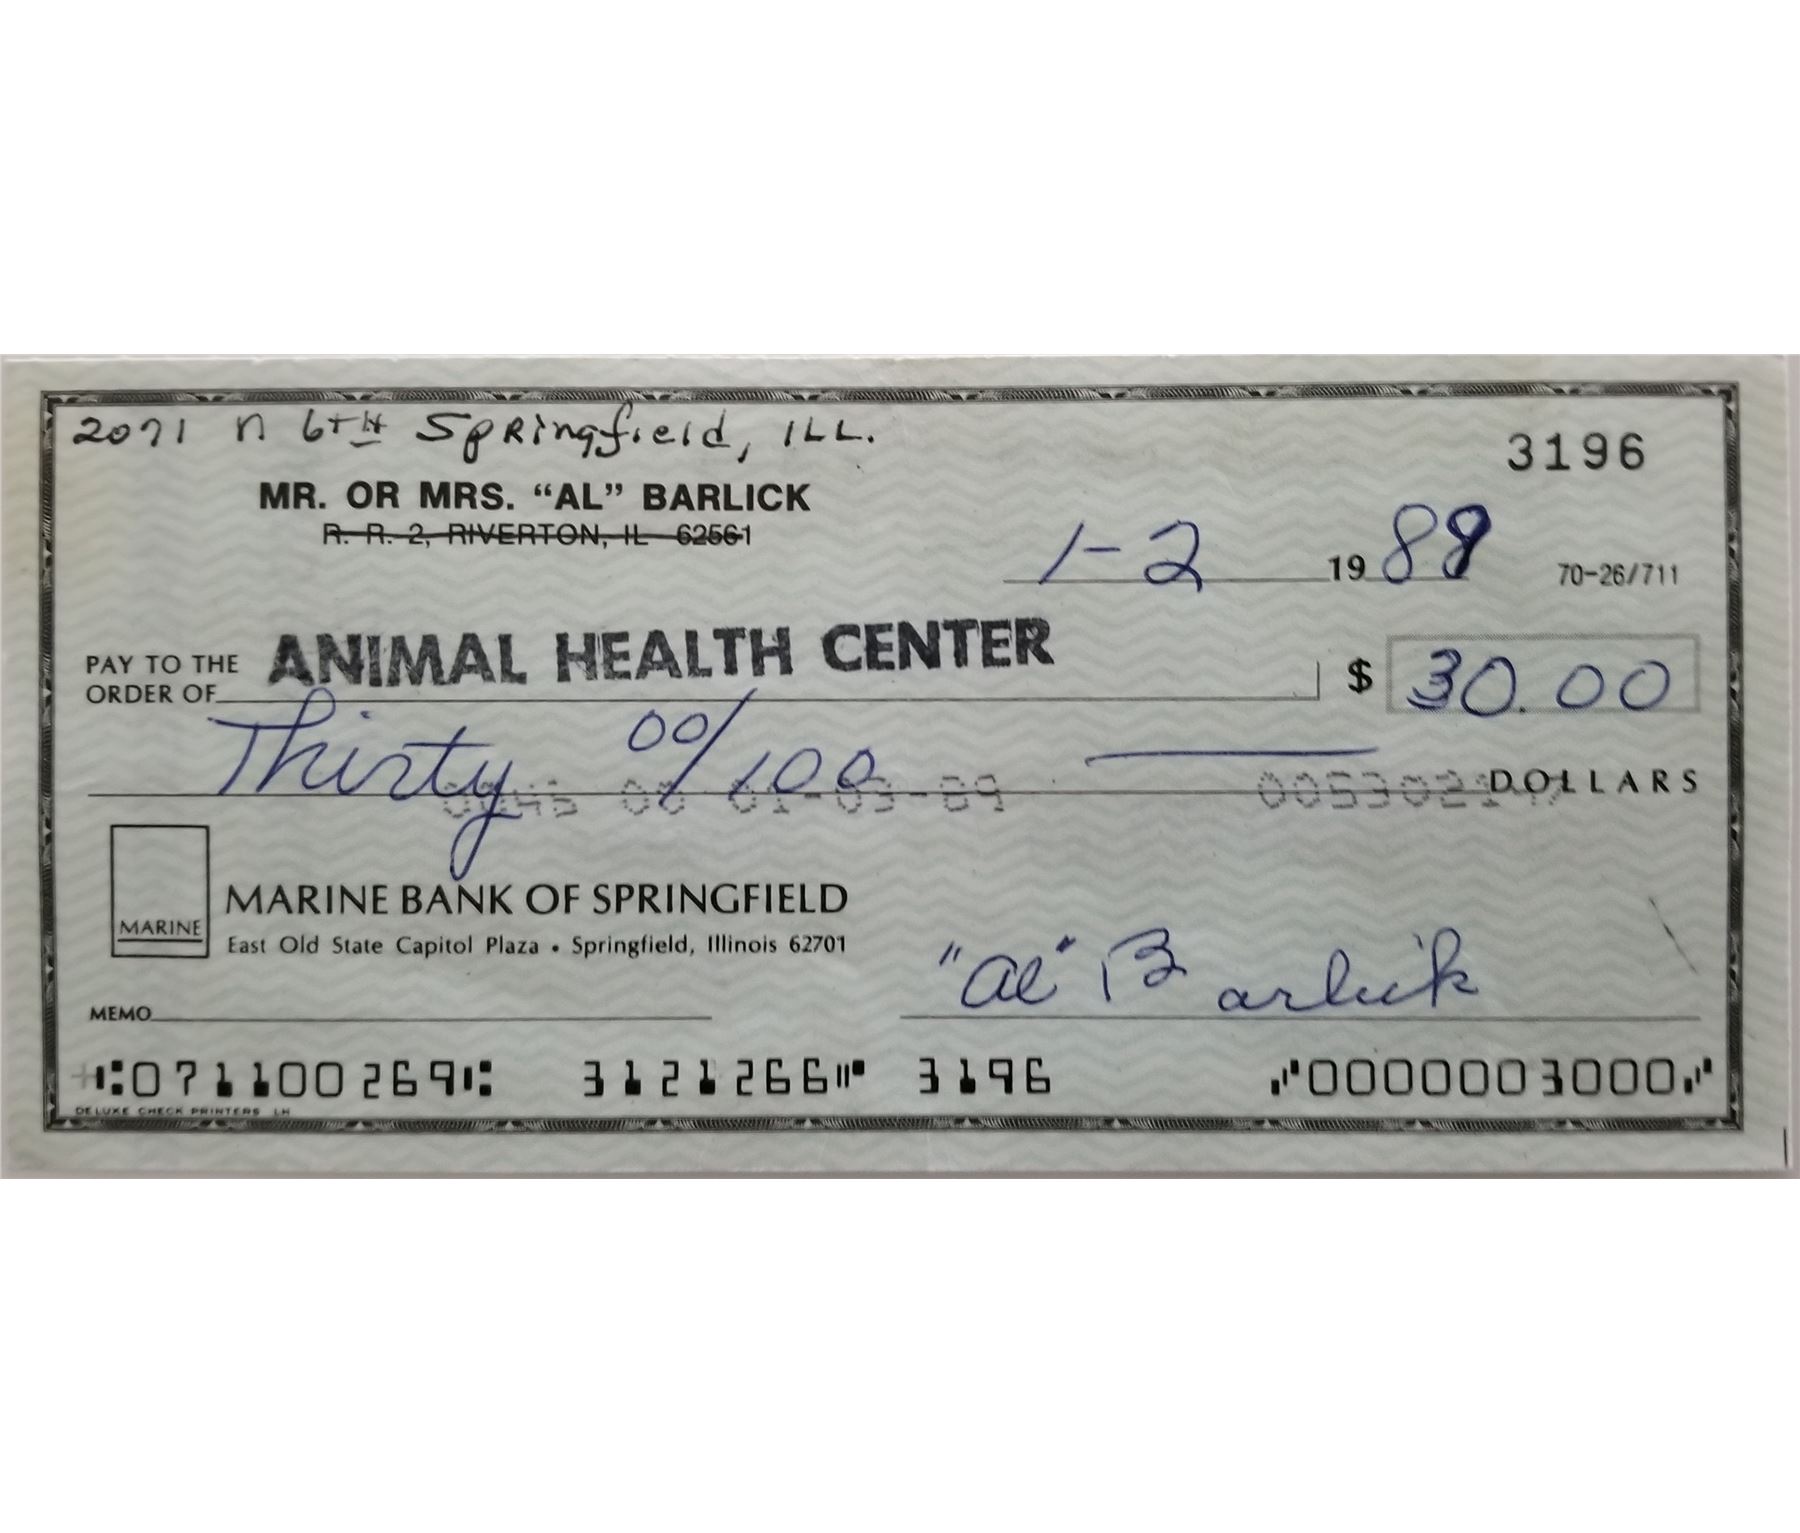 2071 N 6TH Springfield, ILL.
3196
MR. OR MRS. “AL” BARLICK
R. R. 2, RIVERTON, IL 62561
1-2 19 88 70-26/711
PAY TO THE ORDER OF ANIMAL HEALTH CENTER $ 30.00
Thirty 00/100 DOLLARS
MARINE
MARINE BANK OF SPRINGFIELD
East Old State Capitol Plaza • Springfield, Illinois 62701
"Al" Barlick
MEMO
⑆071100269⑆ 3121266⑈ 3196 ⑇0000003000⑇
DELUXE CHECK PRINTERS LH